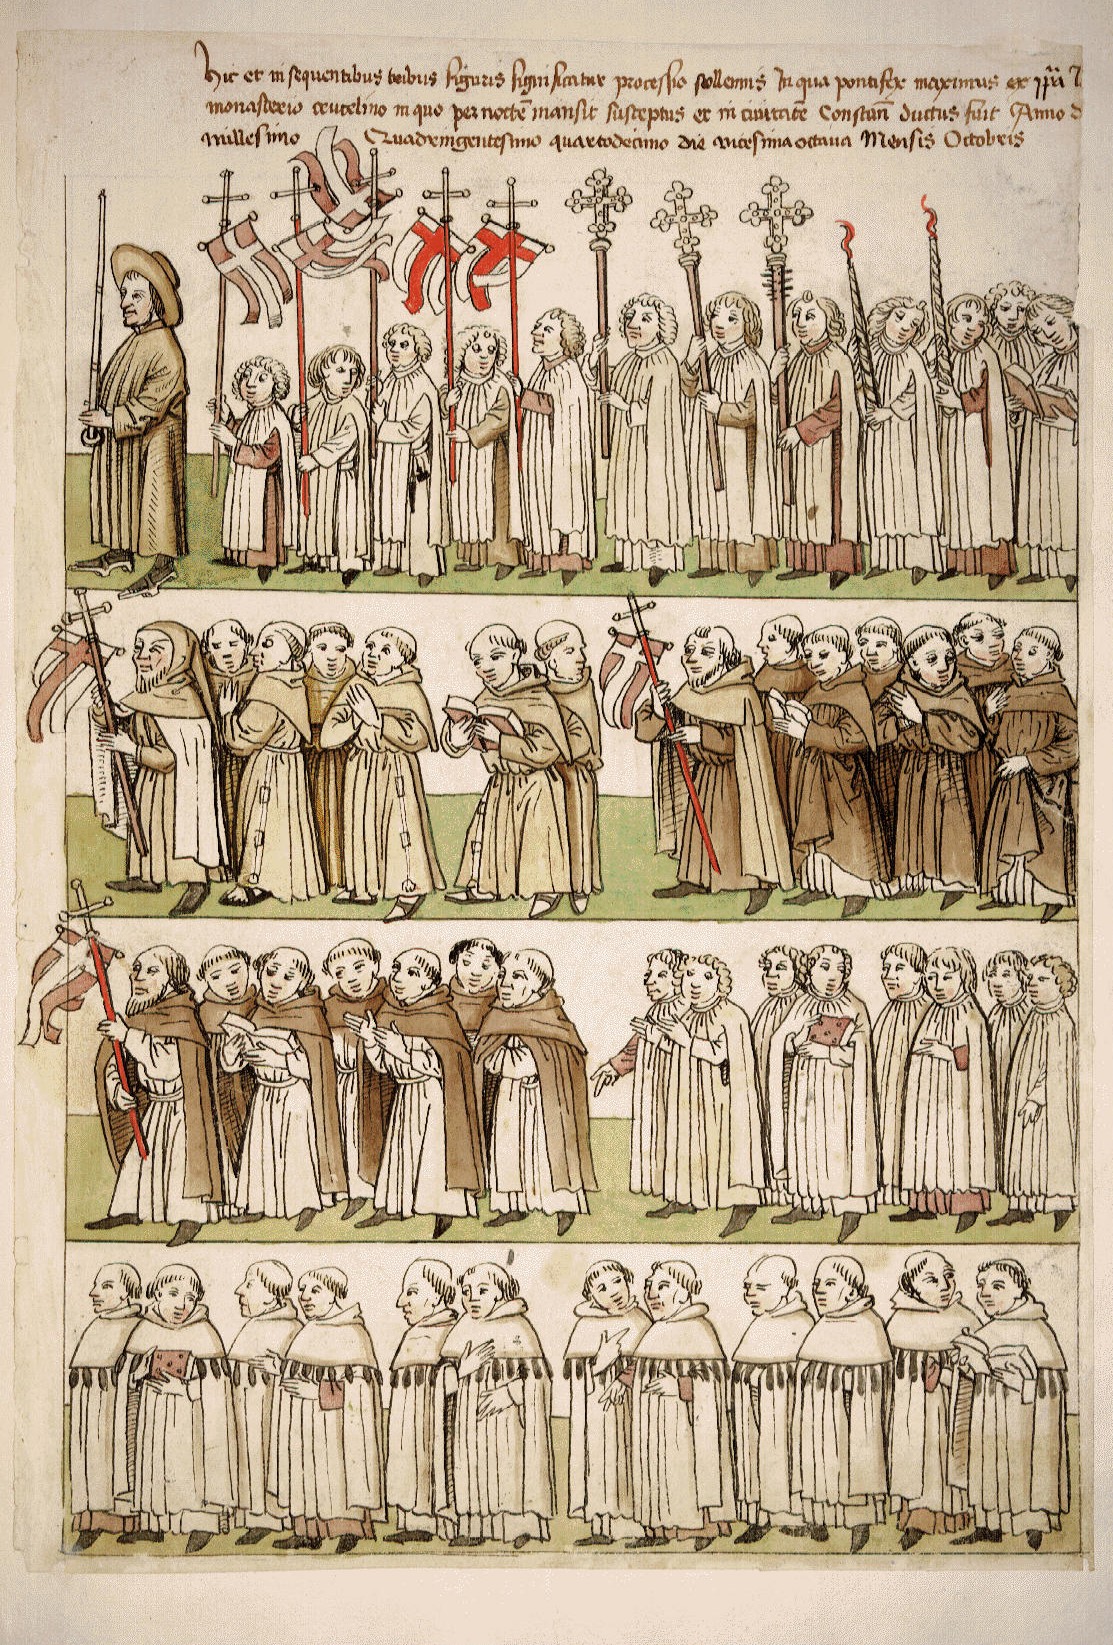 Hic et in sequentibus tribus figuris significatur processio sollennis In qua pontifex maximus ex
monasterio crucelino in quo per noctē mansit susceptus et in civitatē Constanñ ductus fuit Anno
millesimo Quadringentesimo quartodecimo die vicesima octava Mensis Octobris